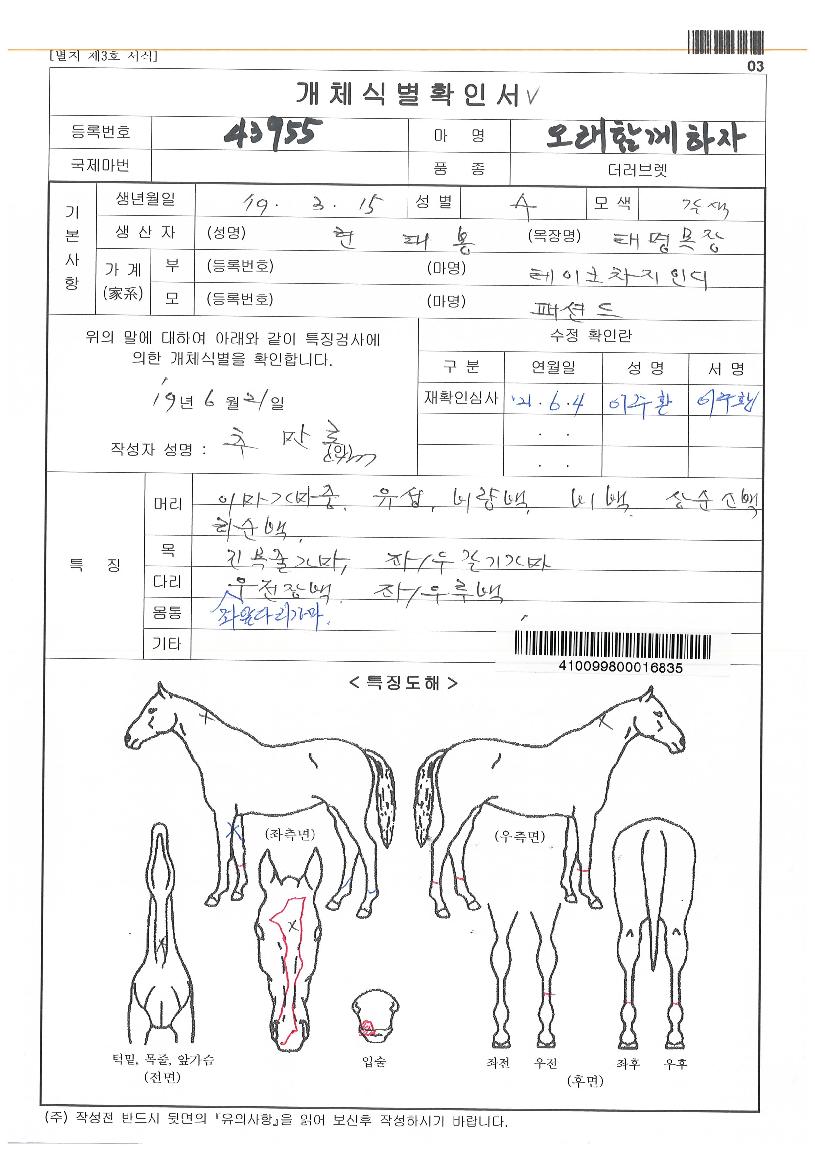 [별지 제3호 서식]
03
개체식별확인서 V
등록번호 43955 마 명 오래함께하자
국제마번 품 종 더러브렛
기본사항
생년월일 19. 3. 15 성별 수 모색 갈색
생산자 (성명) 현 태 봉 (목장명) 태명목장
가계 (家系) 부 (등록번호) (마명) 테이크차지인디
모 (등록번호) (마명) 패션드
위의 말에 대하여 아래와 같이 특징검사에
의한 개체식별을 확인합니다.
'19년 6월 21일
작성자 성명 : 추 만 (인)
수정 확인란
구 분 연월일 성 명 서 명
재확인심사 '21. 6. 4 이주환 이주환
. .
. .
특 징
머리 이마가마중, 유성, 비량백, 비백, 상순소백
하순백,
목 진목줄가마, 좌/우갈기가마
다리 우전장백, 좌/우후백
몸통 좌앞다리가마,
기타
410099800016835
< 특징도해 >
(좌측면) (우측면)
턱밑, 목줄, 앞가슴
(전면)
입술
좌전 우전 좌후 우후
(후면)
(주) 작성전 반드시 뒷면의 『유의사항』을 읽어 보신후 작성하시기 바랍니다.